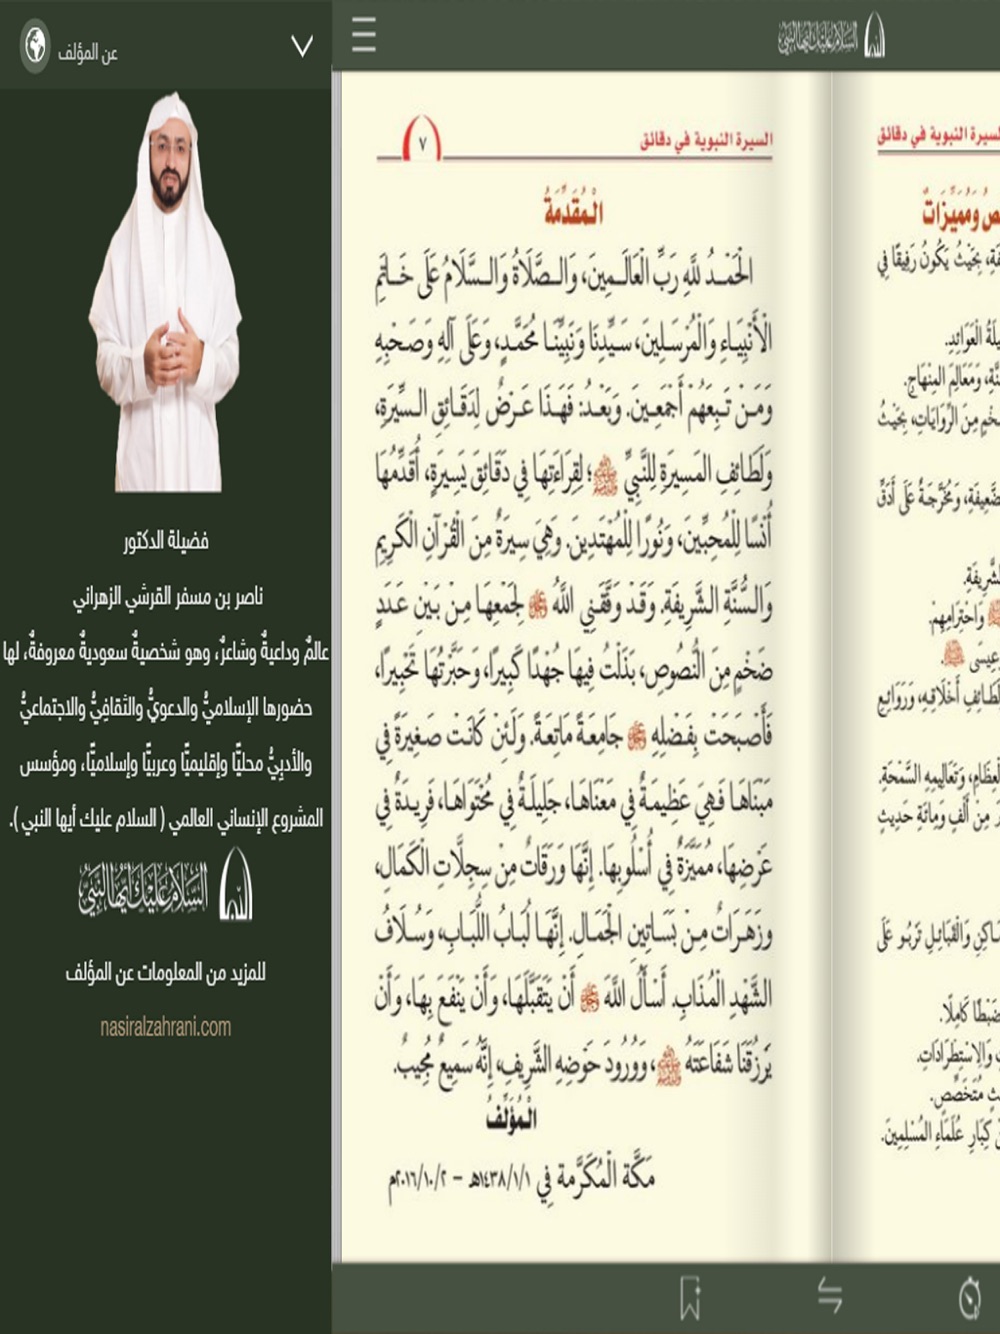 عن المؤلف
فضيلة الدكتور
ناصر بن مسفر القرشي الزهراني
عالمٌ وداعيةٌ وشاعرٌ، وهو شخصيةٌ سعوديةٌ معروفةٌ، لها
حضورها الإسلاميُّ والدعويُّ والثقافِيُّ والاجتماعيُّ
والأدبِيُّ محليًّا وإقليميًّا وعربيًّا وإسلاميًّا، ومؤسس
المشروع الإنساني العالمي ( السلام عليك أيها النبي ).
السلام عليك أيها النبي
للمزيد من المعلومات عن المؤلف
nasiralzahrani.com
السلام عليك أيها النبي
السيرة النبوية في دقائق
٧
الْمُقَدِّمَةُ
الْحَمْدُ للَّهِ رَبِّ الْعَالَمِينَ، وَالصَّلَاةُ وَالسَّلَامُ عَلَى خَاتَمِ
الْأَنْبِيَاءِ وَالْمُرْسَلِينَ، سَيِّدِنَا وَنَبِيِّنَا مُحَمَّدٍ، وَعَلَى آلِهِ وَصَحْبِهِ
وَمَنْ تَبِعَهُمْ أَجْمَعِينَ. وَبَعْدُ: فَهَذَا عَرْضٌ لِدَقَائِقِ السِّيرَةِ،
وَلَطَائِفِ المَسِيرَةِ لِلنَّبِيِّ ﷺ؛ لِقِرَاءَتِهَا فِي دَقَائِقَ يَسِيرَةٍ، أُقَدِّمُهَا
أُنْسًا لِلْمُحِبِّينَ، وَنُورًا لِلْمُهْتَدِينَ. وَهِيَ سِيرَةٌ مِنَ الْقُرْآنِ الْكَرِيمِ
وَالسُّنَّةِ الشَّرِيفَةِ. وَقَدْ وَفَّقَنِي اللَّهُ ﷻ لِجَمْعِهَا مِنْ بَيْنِ عَدَدٍ
ضَخْمٍ مِنَ النُّصُوصِ، بَذَلْتُ فِيهَا جُهْدًا كَبِيرًا، وَحَبَّرْتُهَا تَحْبِيرًا،
فَأَصْبَحَتْ بِفَضْلِهِ ﷻ جَامِعَةً مَاتِعَةً. وَلَئِنْ كَانَتْ صَغِيرَةً فِي
مَبْنَاهَا فَهِيَ عَظِيمَةٌ فِي مَعْنَاهَا، جَلِيلَةٌ فِي مُحْتَوَاهَا، فَرِيدَةٌ فِي
عَرْضِهَا، مُمَيَّزَةٌ فِي أُسْلُوبِهَا. إِنَّهَا وَرَقَاتٌ مِنْ سِجِلَّاتِ الْكَمَالِ،
وَزَهَرَاتٌ مِنْ بَسَاتِينِ الْجَمَالِ. إِنَّهَا لُبَابُ اللُّبَابِ، وَسُلَافُ
الشَّهْدِ الْمُذَابِ. أَسْأَلُ اللَّهَ ﷻ أَنْ يَتَقَبَّلَهَا، وَأَنْ يَنْفَعَ بِهَا، وَأَنْ
يَرْزُقَنَا شَفَاعَتَهُ ﷺ، وَوُرُودَ حَوْضِهِ الشَّرِيفِ، إِنَّهُ سَمِيعٌ مُجِيبٌ.
الْمُؤَلِّفُ
مَكَّة الْمُكَرَّمة فِي ١٤٣٨/١/١هـ - ٢٠١٦/١٠/٢م
النبوية في دقائق
وَمُمَيِّزَاتٌ
بِحَيْثُ يَكُونُ رَفِيقًا فِي
الْعَوَائِدِ.
وَمَعَالِمَ المِنْهَاجِ.
مِنَ الرِّوَايَاتِ، بِحَيْثُ
وَمُخَرَّجَةٌ عَلَى أَدَقِّ
وَاحْتِرَامِهِمْ.
أَخْلَاقِهِ، وَرَوَائِعِ
وَتَعَالِيمِهِ السَّمْحَةِ.
مِنْ أَلْفٍ وَمِائَةِ حَدِيثٍ
وَالْقَبَائِلِ تَرْبُو عَلَى
كَامِلًا.
وَالِاسْتِطْرَادَاتِ.
مُتَخَصِّص.
كِبَارِ عُلَمَاءِ المُسْلِمِينَ.